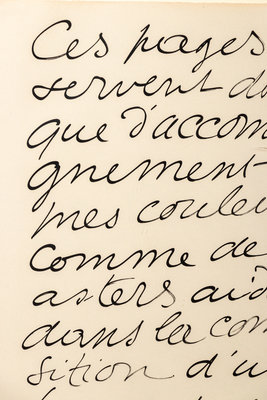 Ces pages
servent do
que d'accom
gnement
mes couleu
comme de
asters aid
dans la com
sition d'u